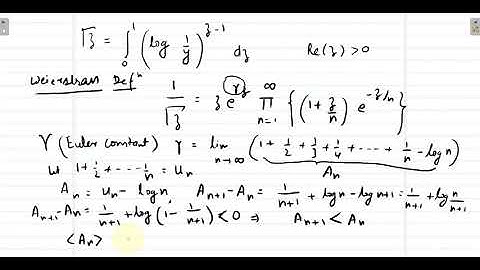 Γz = ∫₀¹ (log 1/y)^(z-1) dz    Re(z) > 0
Weierstrass Defⁿ    1/Γz = z e^(γz) ∏_(n=1)^∞ { (1 + z/n) e^(-z/n) }
γ (Euler constant)    γ = lim_(n→∞) (1 + 1/2 + 1/3 + 1/4 + --- + 1/n - log n)
Let 1 + 1/2 + --- 1/n = Uₙ    Aₙ
Aₙ = Uₙ - log n    Aₙ₊₁ - Aₙ = 1/(n+1) + log n - log n+1 = 1/(n+1) + log n/(n+1)
Aₙ₊₁ - Aₙ = 1/(n+1) + log (1 - 1/(n+1)) < 0 ⇒ Aₙ₊₁ < Aₙ
<Aₙ>